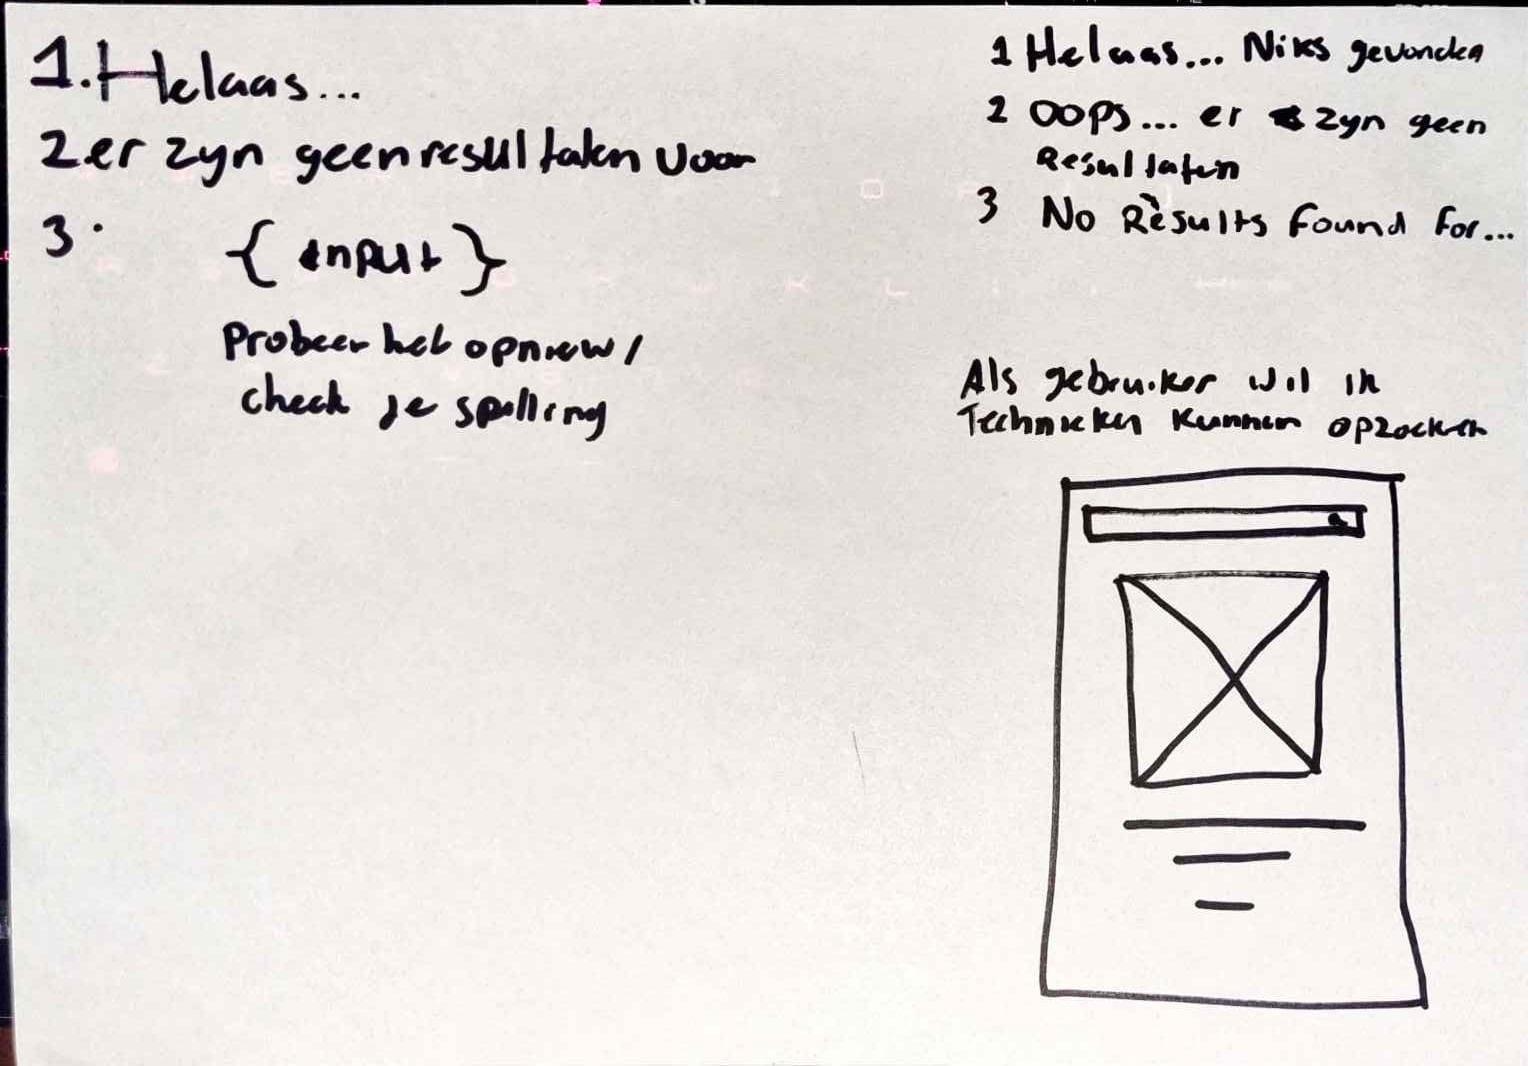 1. Helaas...
2 er zyn geen resultaten voor
3.
{ input }
Probeer het opnieuw /
check je spelling
1 Helaas... Niks gevonden
2 OOPS... er zyn geen
Resultaten
3 No Results Found For...
Als gebruiker wil ik
Technieken kunnen opzoeken